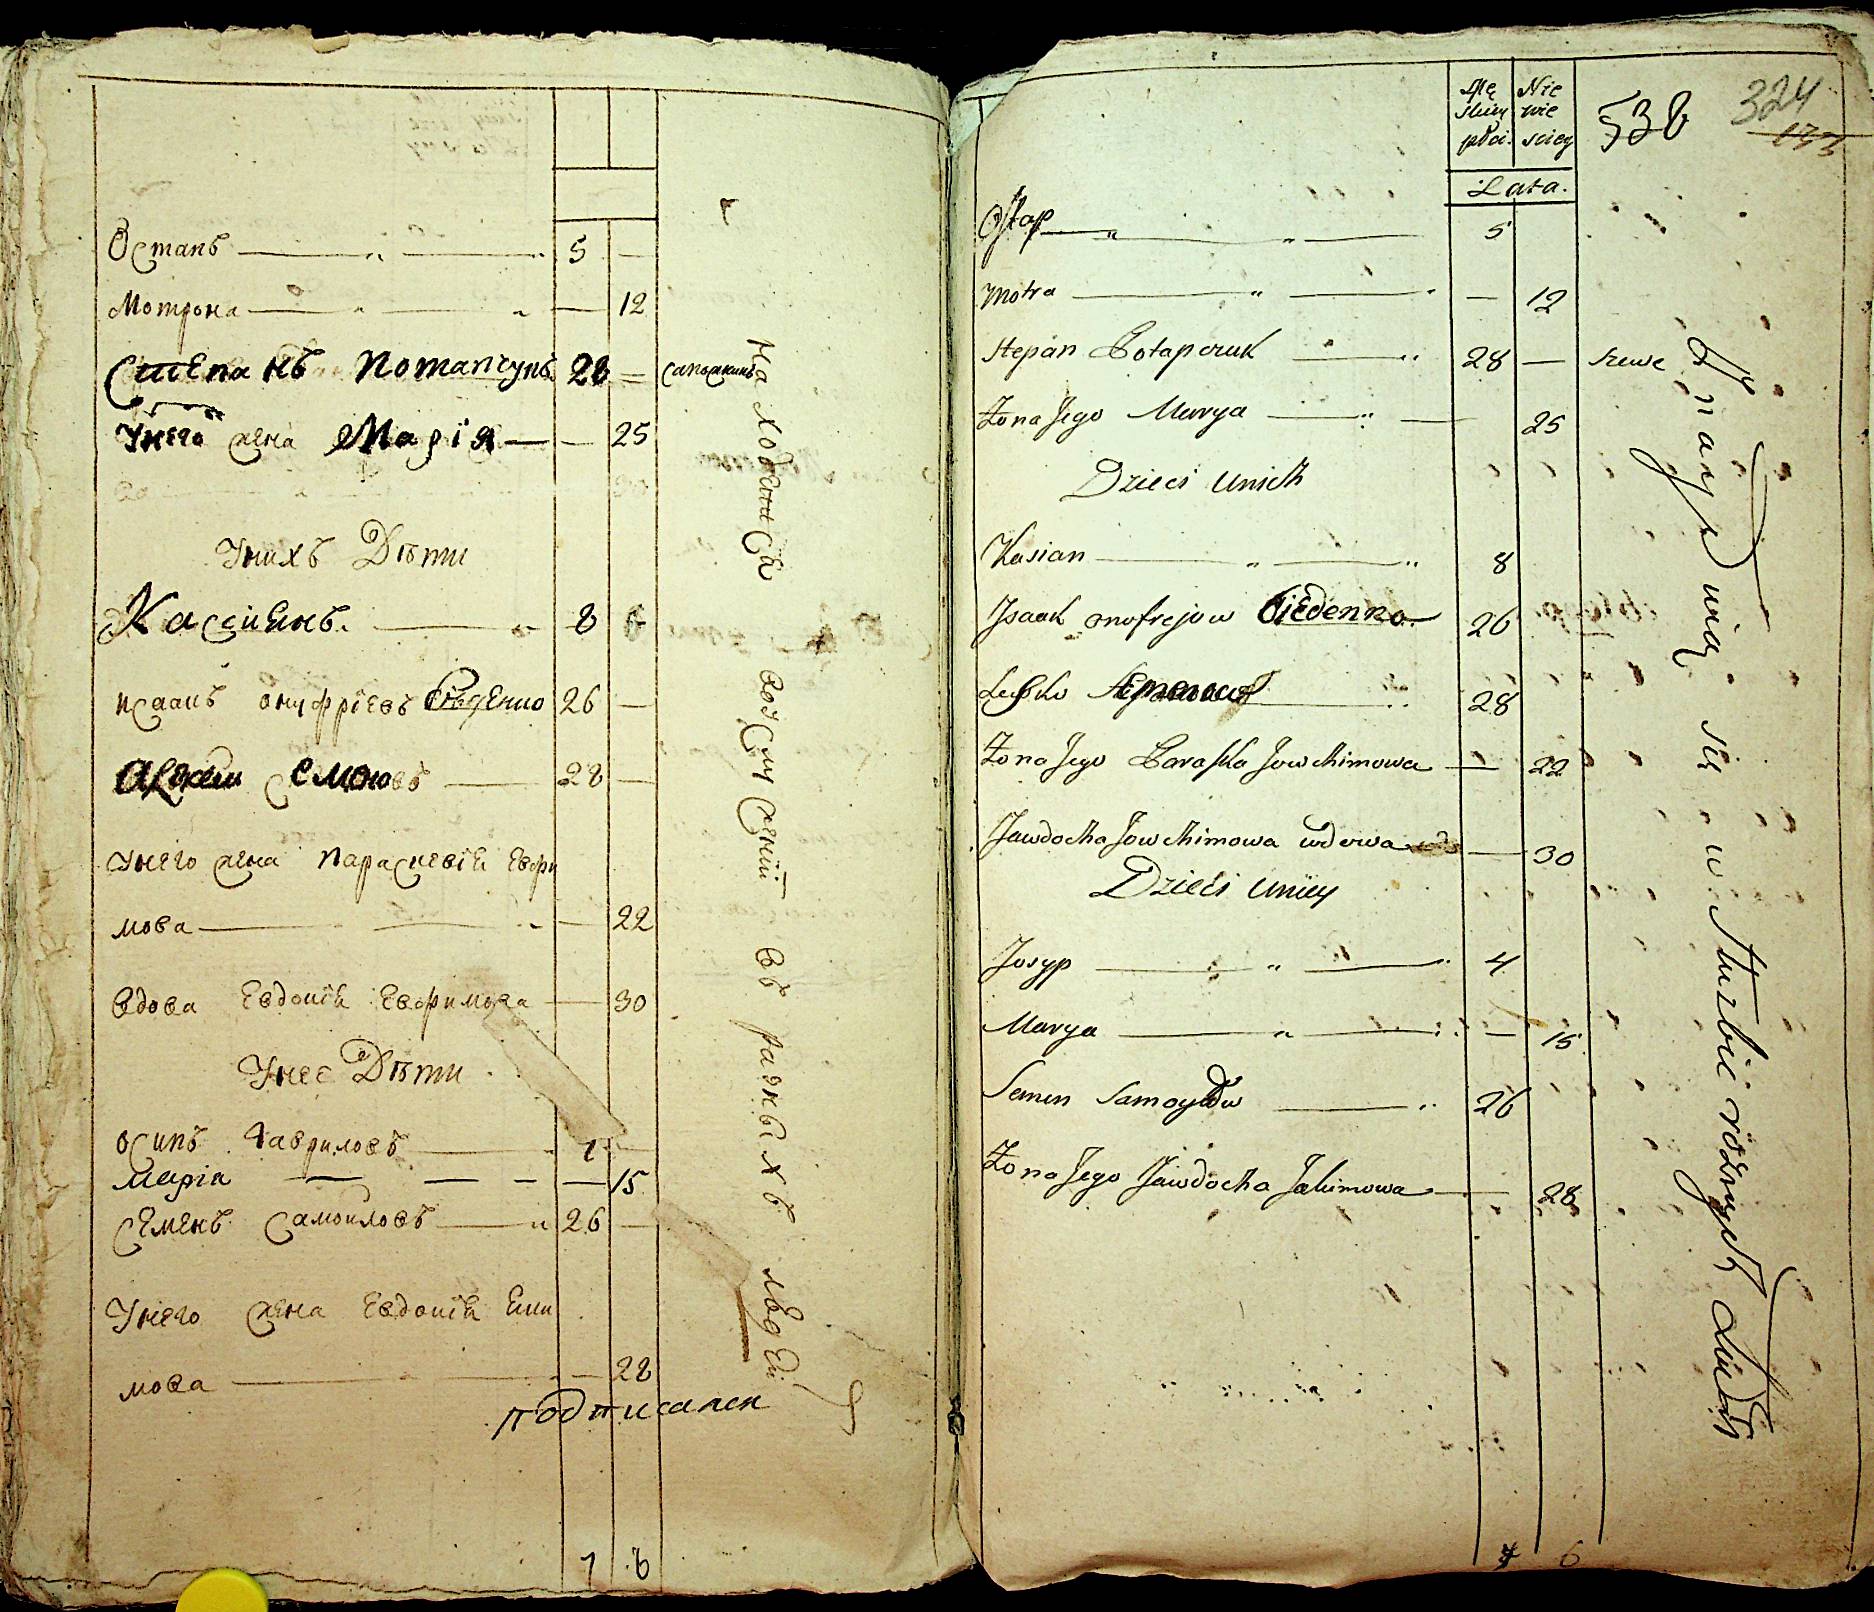 Остапъ — „ — 5 —
Мотрона — „ — „ — 12
Степанъ Потапчукъ 28 — сапожникъ
У него жена Марія — — 25
У нихъ Дѣти
Кассіянъ. — „ 8
исаакъ онуфріевъ Бѣденко 26 —
Алексѣй Семоновъ — 28 —
У него жена Параскевія Евфи
мова — „ — 22
вдова Евдокія Ефимова — — 30
У нее Дѣти
осипъ Гавриловъ — —
Марія — — — — 15
Семенъ Самоиловъ — „ 26 —
У него жена Евдокія Еки
мова — — 28
подписался
7 6
Находятся въ услуженіи въ разныхъ людей
Męz
kiey
płci.
Nie
wie
sciey
Lata.
538
324
133
Ostap — „ — „ — 5
Motra — „ — „ — 12
Stepan Potapczuk — „ 28 — szewc
Żona Jego Marya — „ — 25
Dzieci unich
Kasian — „ — „ 8
Jsaak onofrejow Biedenko 26
Lesko „ 28
Żona Jego Paraska Jowchimowa — 22
Jawdocha Jowchimowa wdowa — 30
Dzieci uniey
Josyp — „ — „ 4
Marya — „ — : — 15
Semen Samoyłow — „ 26
Żona Jego Jawdocha Jakimowa — 28
6
Znayduią się w służbie różnych Ludzi